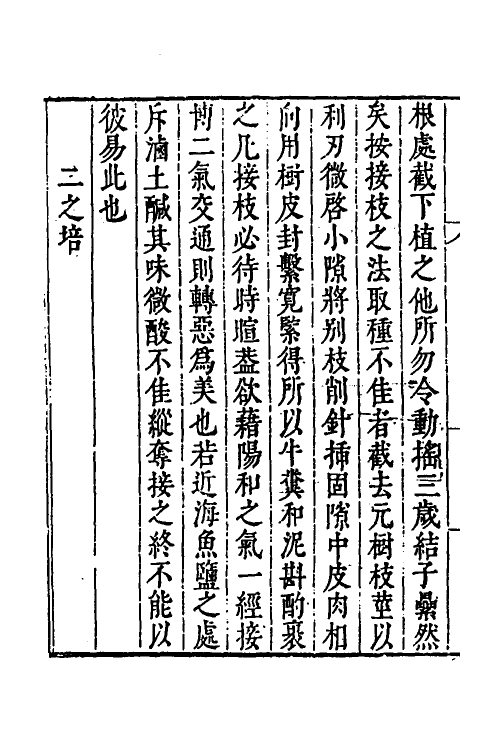 根處截下植之他所勿令動搖三歲結子纍然
矣按接枝之法取種不佳者截去元樹枝莖以
利刃微啓小隙將别枝削針揷固隙中皮肉相
向用樹皮封繫寛緊得所以牛糞和泥斟酌褁
之凡接枝必待時暄葢欲藉陽和之氣一經接
博二氣交通則轉惡爲美也若近海魚鹽之處
斥滷土醎其味微酸不佳縱奪接之終不能以
彼易此也
二之培